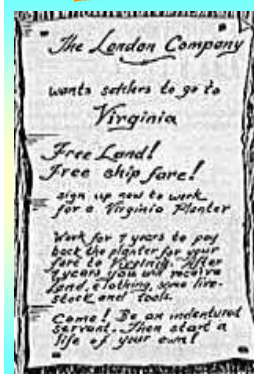 The London Company
wants settlers to go to
Virginia
Free Land!
Free ship fare!
sign up now to work
for a Virginia Planter
Work for 7 years to pay
back the planter for your
fare to Virginia. After
7 years you will receive
land, clothing, some live-
stock and tools.
Come! Be an indentured
servant. Then start a
life of your own!